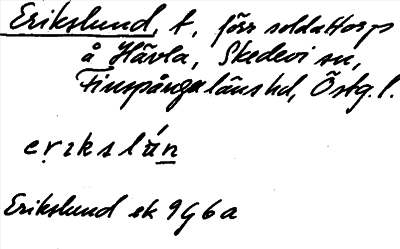 Erikslund, t., förr soldattorp
å Hävla, Skedevi sn,
Finspånga läns hd, Östg. l.
erıkslán
Erikslund ek 9G6a